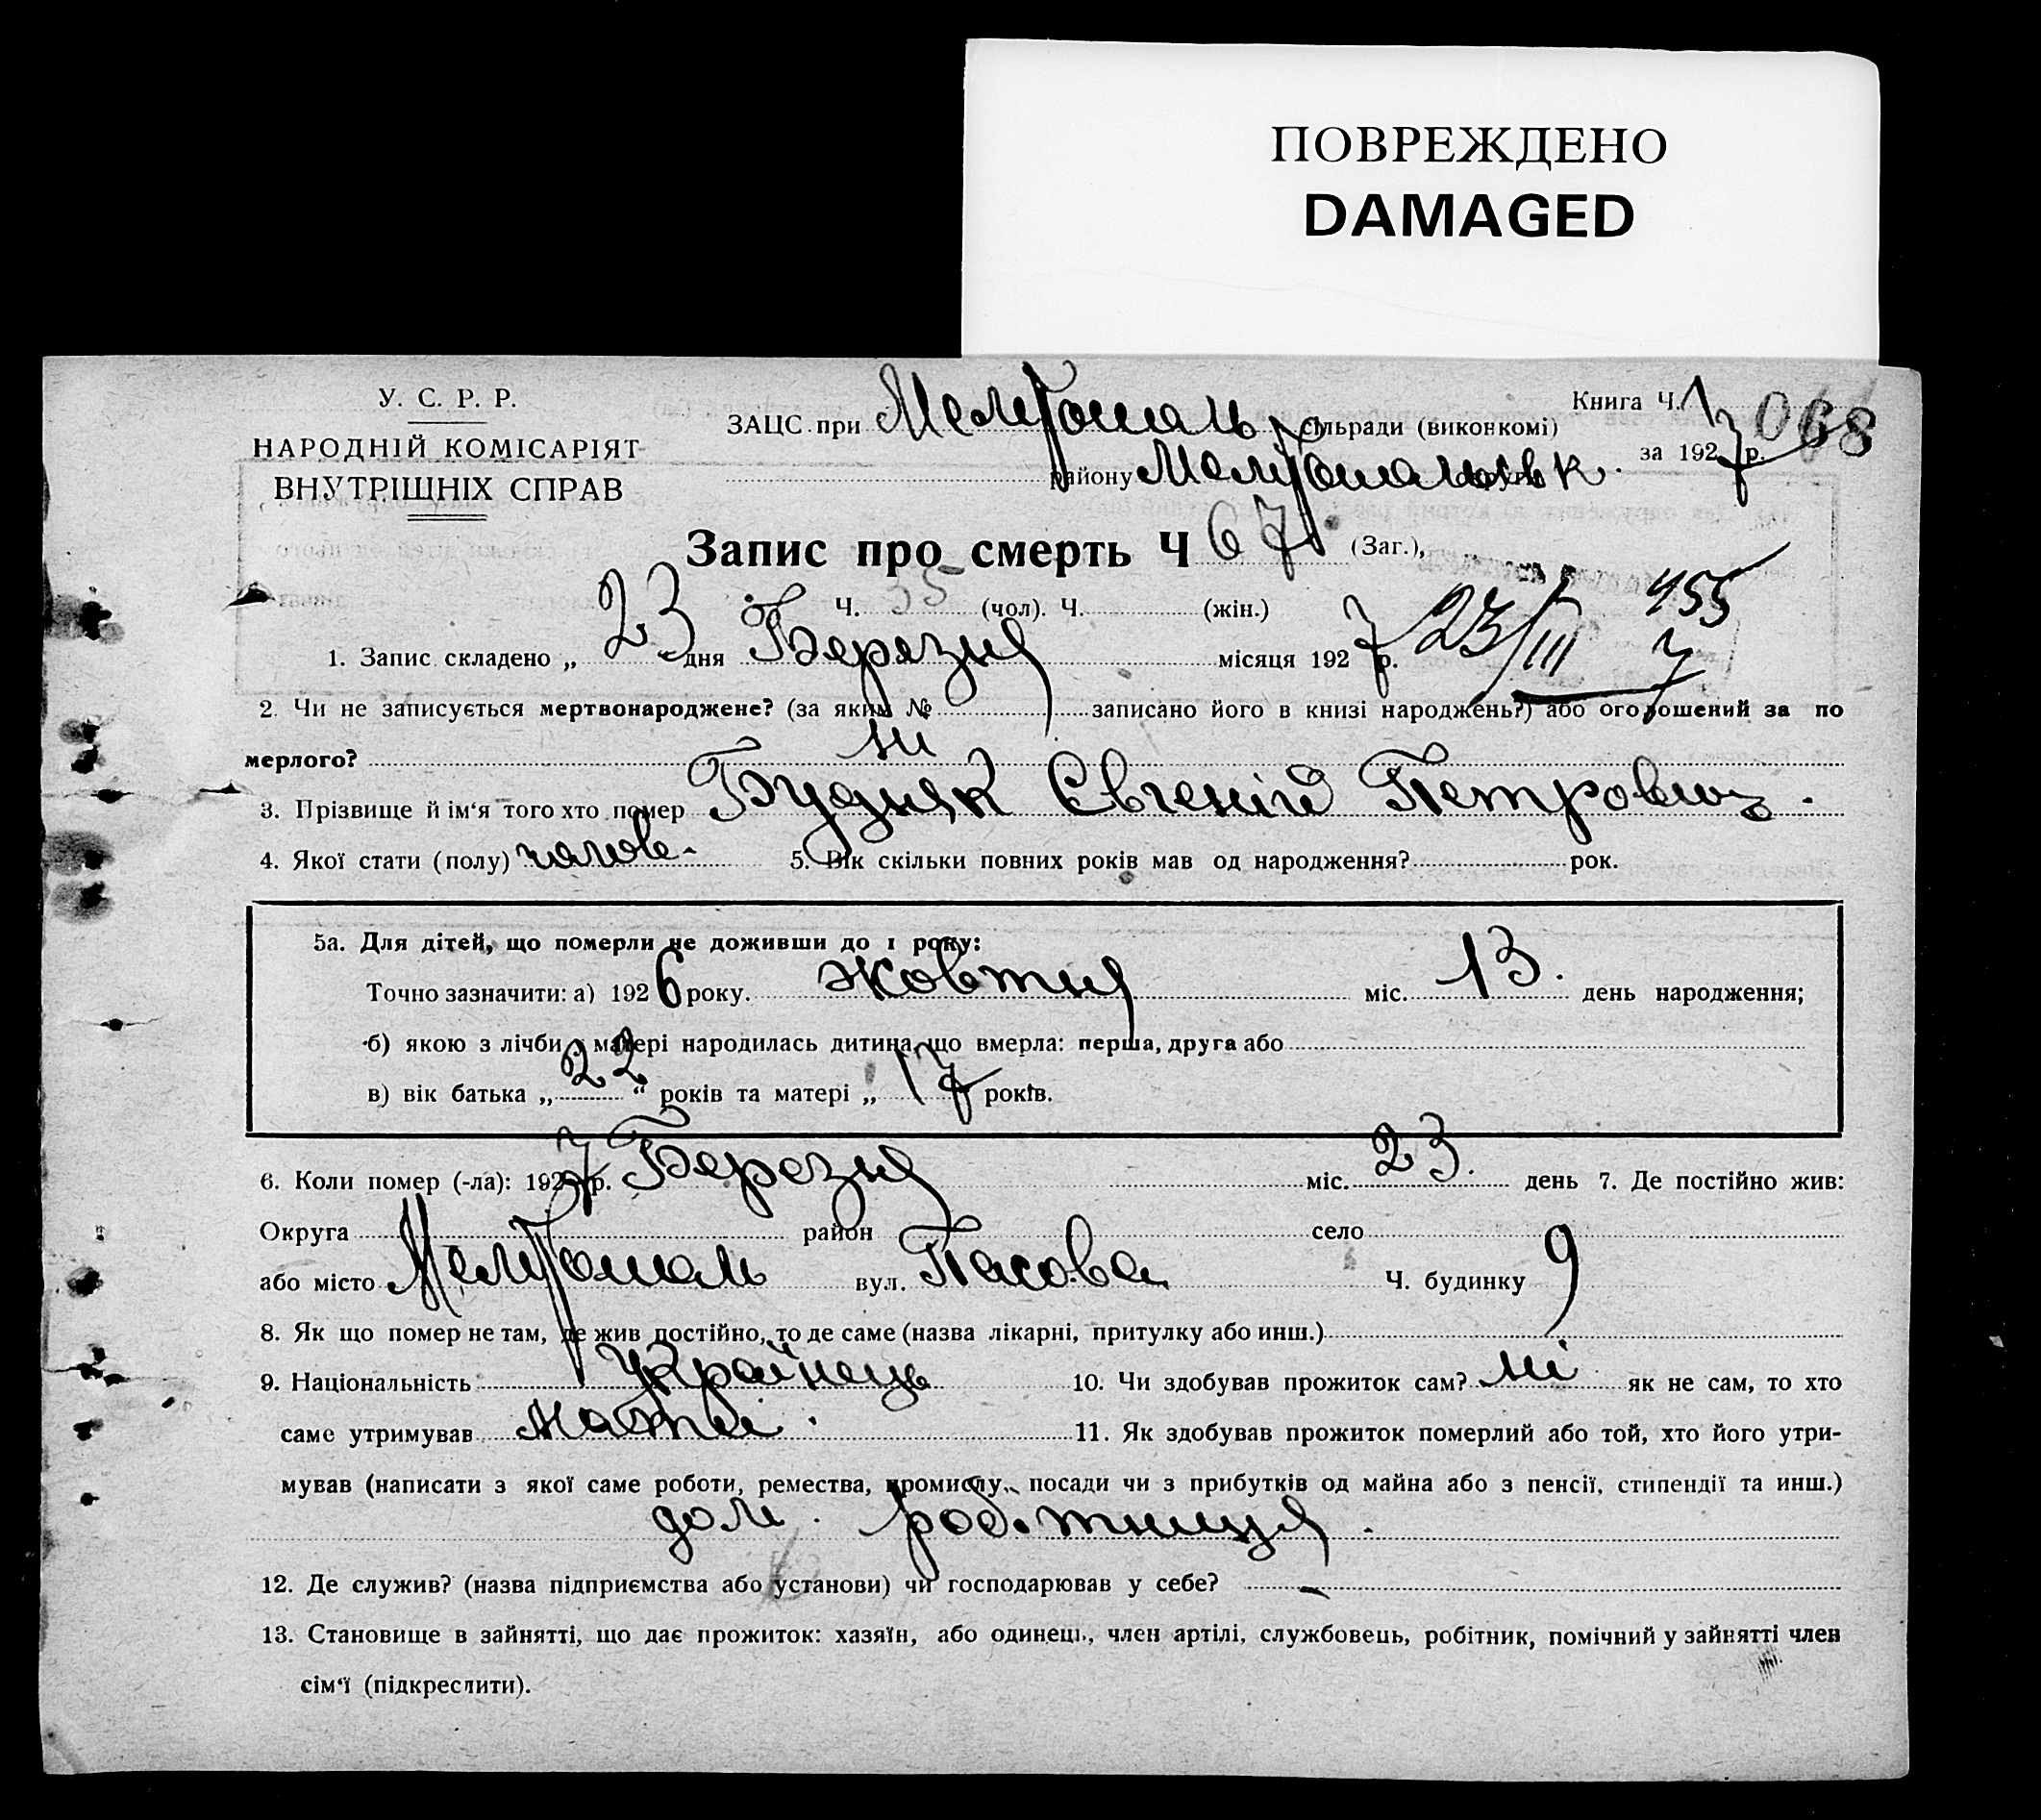 ПОВРЕЖДЕНО
DAMAGED
У. С. Р. Р.
НАРОДНІЙ КОМІСАРІЯТ
ВНУТРІШНІХ СПРАВ
ЗАЦС при Мелітополь сільради (виконкомі)
району Мелітопольськ. округи
Книга Ч. 1
068
за 1927 р.
Запис про смерть Ч 67 (Заг.),
Ч. 35 (чол). Ч. (жін.)
455
23/III 7
1. Запис складено „ 23 " дня Березня місяця 1927 р.
2. Чи не записується мертвонароджене? (за яким № записано його в книзі народжень?) або оголошений за по
мерлого? ні
3. Прізвище й ім'я того хто помер Будняк Євгеній Петрович.
4. Якої стати (полу) чолов. 5. Вік скільки повних років мав од народження? рок.
5а. Для дітей, що померли не доживши до 1 року:
Точно зазначити: а) 1926 року. жовтня міс. 13. день народження;
б) якою з лічби у матері народилась дитина, що вмерла: перша, друга або
в) вік батька „ 22 “ років та матері „ 17 років.
6. Коли помер (-ла): 1927 р. Березня міс. 23. день 7. Де постійно жив:
Округа район село
або місто Мелітополь вул. Ч. будинку 9
8. Як що помер не там, де жив постійно, то де саме (назва лікарні, притулку або инш.)
9. Національність Українець 10. Чи здобував прожиток сам? ні як не сам, то хто
саме утримував мати. 11. Як здобував прожиток померлий або той, хто його утри-
мував (написати з якої саме роботи, ремества, промислу, посади чи з прибутків од майна або з пенсії, стипендії та инш.)
дом. робітниця.
12. Де служив? (назва підприємства або установи) чи господарював у себе? –
13. Становище в зайнятті, що дає прожиток: хазяїн, або одинець, член артілі, службовець, робітник, помічний у зайнятті член
сім'ї (підкреслити).